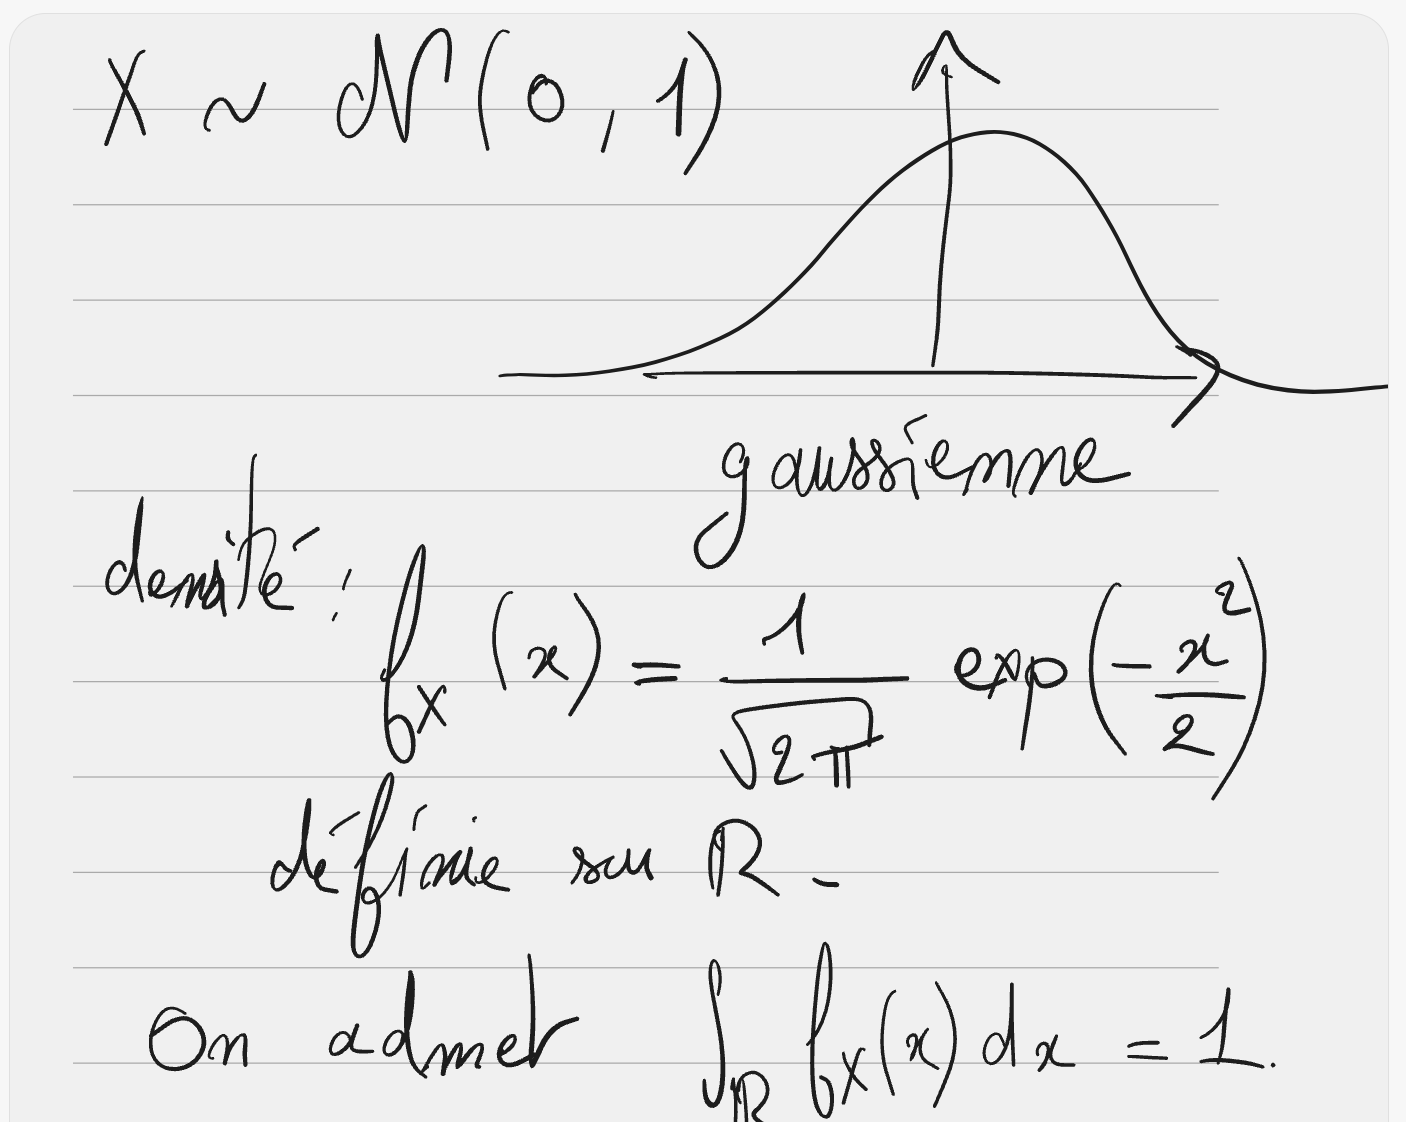 X ~ 𝒩(0, 1)
gaussienne
densité :
f_X(x) = 1/√(2π) exp(-x²/2)
définie sur ℝ.
On admet ∫_ℝ f_X(x) dx = 1.